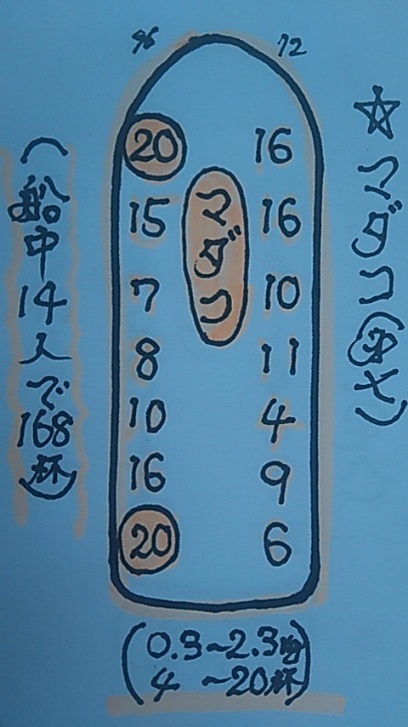 ☆マダコ
96 72
20 16
15 16
7 10
8 11
10 4
16 9
20 6
マダコ
(船中14人で168杯)
(0.3~2.3kg
4 ~20杯)